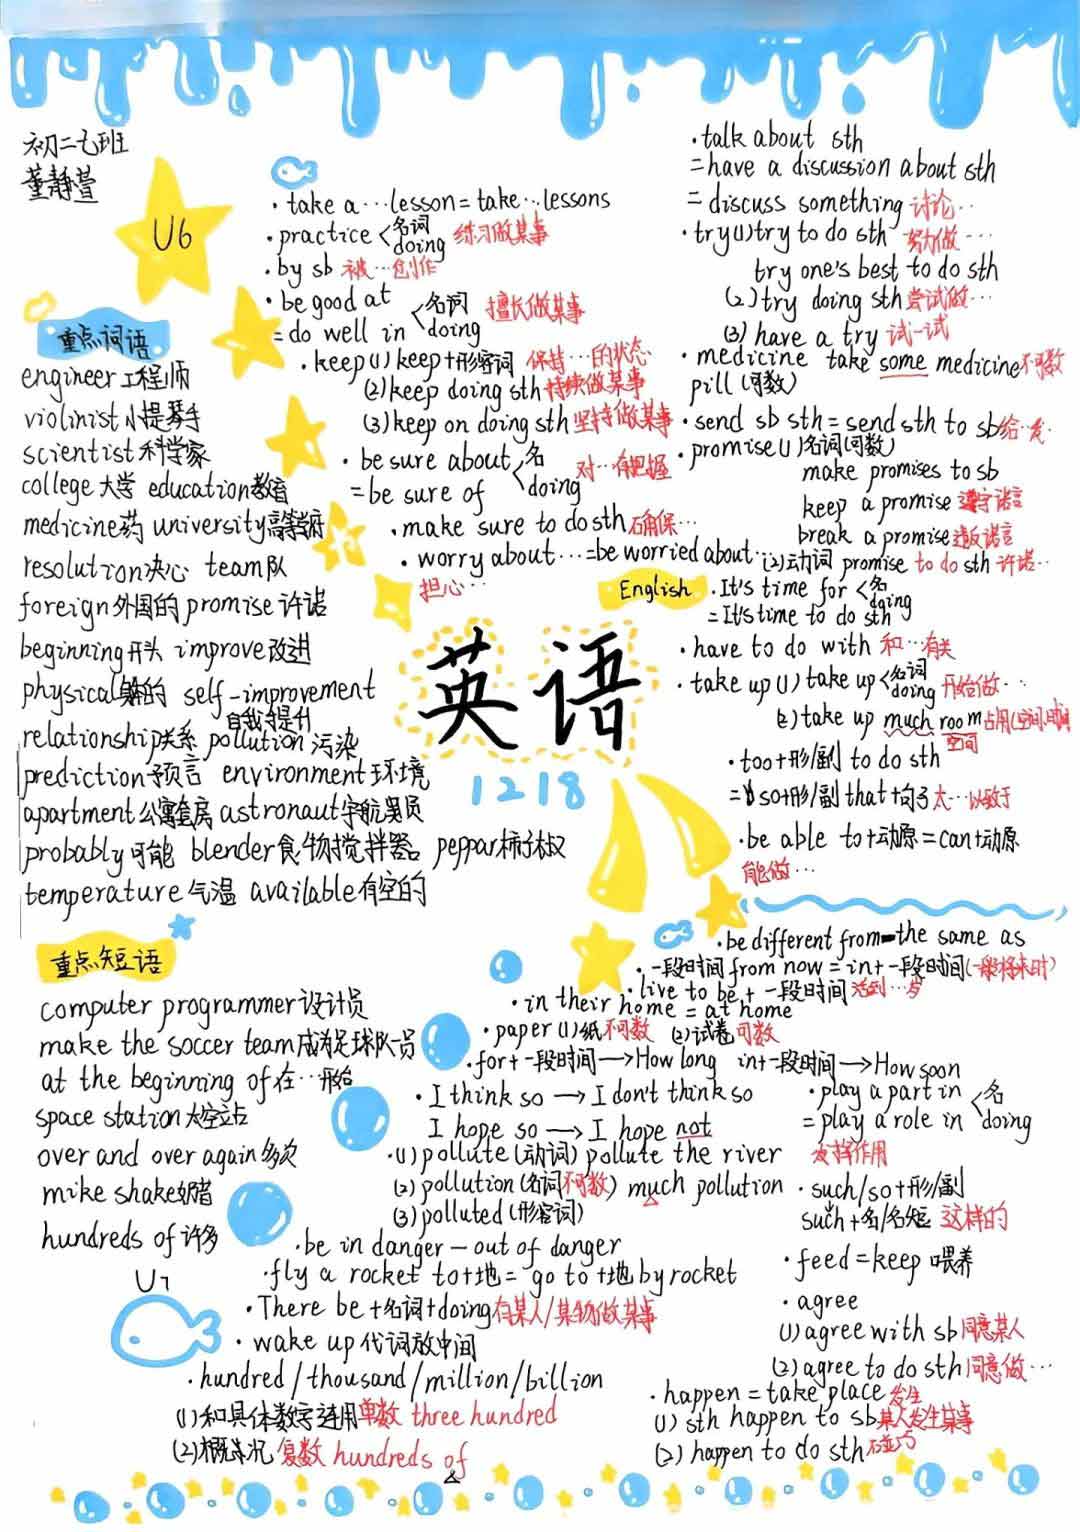 初二七班
董静萱
U6
· take a … lesson = take … lessons
· practice < 名词 doing 练习做某事
· by sb 被…创作
· be good at
= do well in < 名词 doing 擅长做某事
· keep (1) keep+形容词 保持…的状态
(2) keep doing sth 持续做某事
(3) keep on doing sth 坚持做某事
· be sure about
= be sure of < 名 doing 对…有把握
· make sure to do sth 确保…
· worry about … = be worried about …
担心…
· talk about sth
= have a discussion about sth
= discuss something 讨论…
· try (1) try to do sth 努力做…
try one's best to do sth
(2) try doing sth 尝试做…
(3) have a try 试一试
· medicine take some medicine 不可数
pill (可数)
· send sb sth = send sth to sb 给…发
· promise (1) 名词(可数)
make promises to sb
keep a promise 遵守诺言
break a promise 违反诺言
(2) 动词 promise to do sth 许诺…
English
· It's time for < 名 doing
= It's time to do sth
· have to do with 和…有关
· take up (1) take up < 名词 doing 开始做…
(2) take up much room 占用(空间,时间)
空间
· too+形/副 to do sth
= so+形/副 that+句子 太…以致于
· be able to+动原 = can+动原
能做…
重点词语
engineer 工程师
violinist 小提琴手
scientist 科学家
college 大学 education 教育
medicine 药 university 高等学府
resolution 决心 team 队
foreign 外国的 promise 许诺
beginning 开头 improve 改进
physical 身体的 self-improvement
自我提升
relationship 关系 pollution 污染
prediction 预言 environment 环境
apartment 公寓套房 astronaut 宇航员
probably 可能 blender 食物搅拌器 peppar 柿子椒
temperature 气温 available 有空的
英语
1218
重点短语
computer programmer 设计员
make the soccer team 成为足球队一员
at the beginning of 在…开始
space station 太空站
over and over again 多次
mike shake 奶昔
hundreds of 许多
U7
· be different from — the same as
· 一段时间 from now = in+一段时间 (一般将来时)
· live to be + 一段时间 活到…岁
· in their home = at home
· paper (1) 纸 不可数 (2) 试卷 可数
· for+一段时间 → How long in+一段时间 → How soon
· I think so → I don't think so
I hope so → I hope not
· (1) pollute (动词) pollute the river
(2) pollution (名词 不可数) much pollution
(3) polluted (形容词)
· be in danger — out of danger
· fly a rocket to+地 = go to+地 by rocket
· There be+名词+doing 有某人/某物做某事
· wake up 代词放中间
· hundred/thousand/million/billion
(1) 和具体数字连用 单数 three hundred
(2) 概况 复数 hundreds of
· play a part in
= play a role in < 名 doing
发挥作用
· such/so+形/副
such+名/名短 这样的
· feed = keep 喂养
· agree
(1) agree with sb 同意某人
(2) agree to do sth 同意做…
· happen = take place 发生
(1) sth happen to sb 某人发生某事
(2) happen to do sth 碰巧